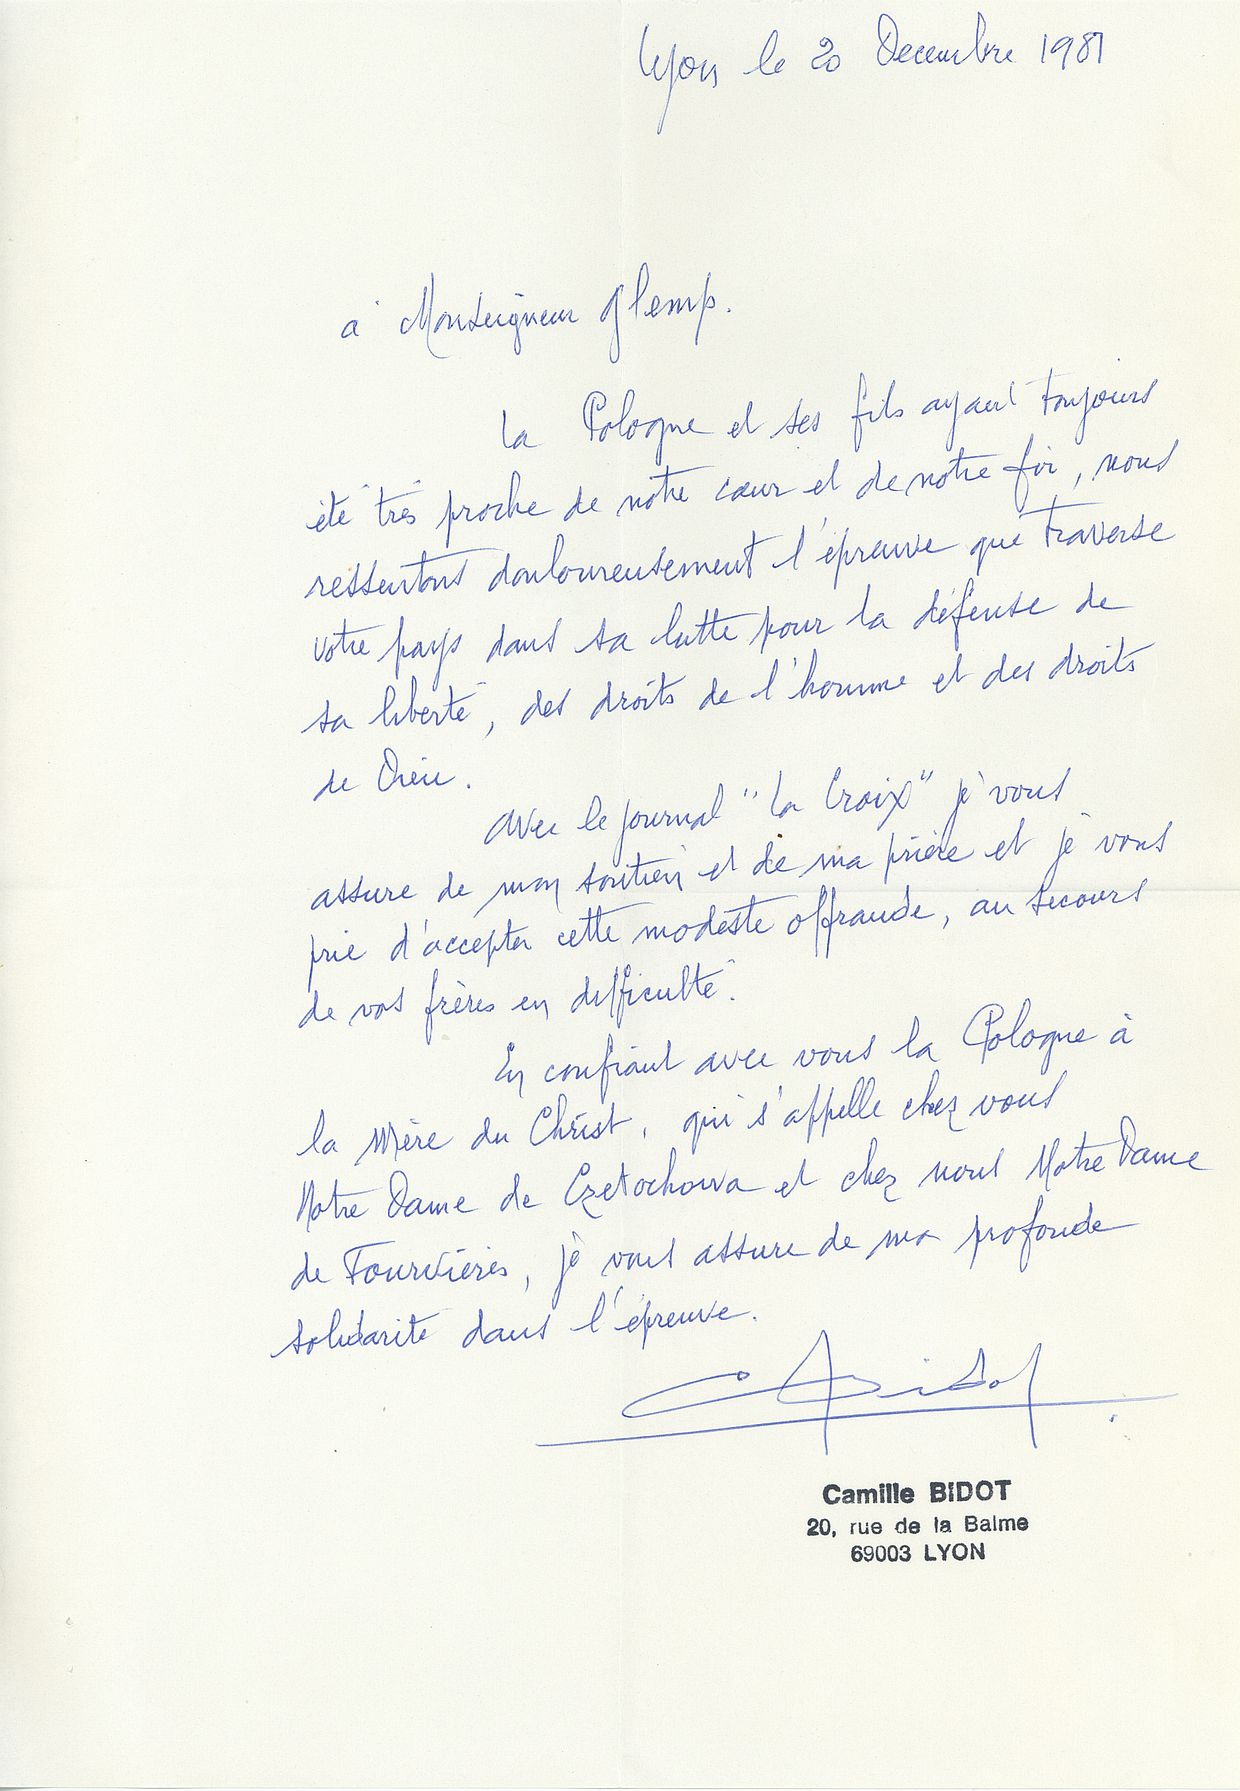 Lyon le 20 Decembre 1981
à Monseigneur Glemp.
La Pologne et ses fils ayant toujours
été très proche de notre cœur et de notre foi, nous
ressentons douloureusement l'épreuve que traverse
votre pays dans sa lutte pour la défense de
sa liberté, des droits de l'homme et des droits
de Dieu.
Avec le journal "La Croix" je vous
assure de mon soutien et de ma prière et je vous
prie d'accepter cette modeste offrande, au secours
de vos frères en difficulté.
En confiant avec vous la Pologne à
la Mère du Christ, qui s'appelle chez vous
Notre Dame de Czetochowa et chez nous Notre Dame
de Fourvières, je vous assure de ma profonde
solidarité dans l'épreuve.
CBidot
Camille BIDOT
20, rue de la Balme
69003 LYON